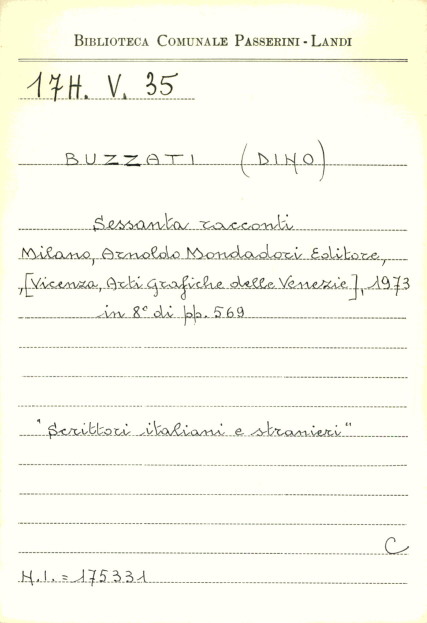 BIBLIOTECA COMUNALE PASSERINI - LANDI
17H. V. 35
BUZZATI (DINO)
Sessanta racconti
Milano, Arnoldo Mondadori Editore,
,[Vicenza, Arti Grafiche delle Venezie], 1973
in 8° di pp. 569
"Scrittori italiani e stranieri"
C
N.I. = 175331